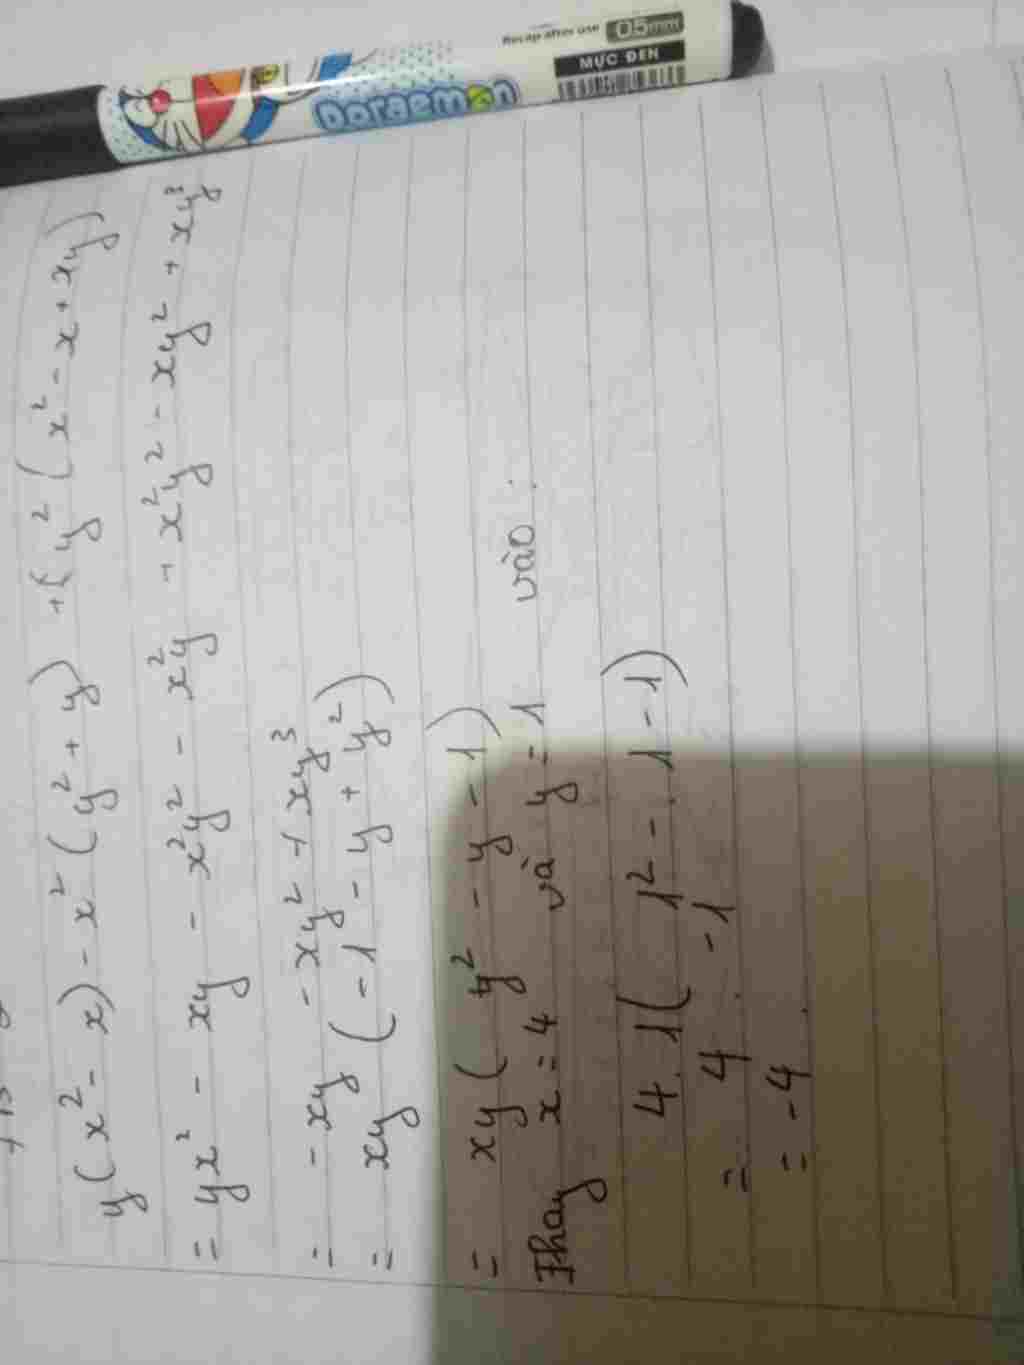 Recap after use 0.5mm
MỰC ĐEN
Doraemon
y(x² - x) - x² (y² + y) + (y² (x² - x + xy)
= yx² - xy - x²y² - x²y + x²y² - xy² + xy³
= - xy - xy² + xy³
= xy (-1 - y + y²)
= xy ( y² - y - 1)
Thay x = 4 và y = 1 vào :
4. 1( 1² - 1 - 1)
= 4 . -1
= -4